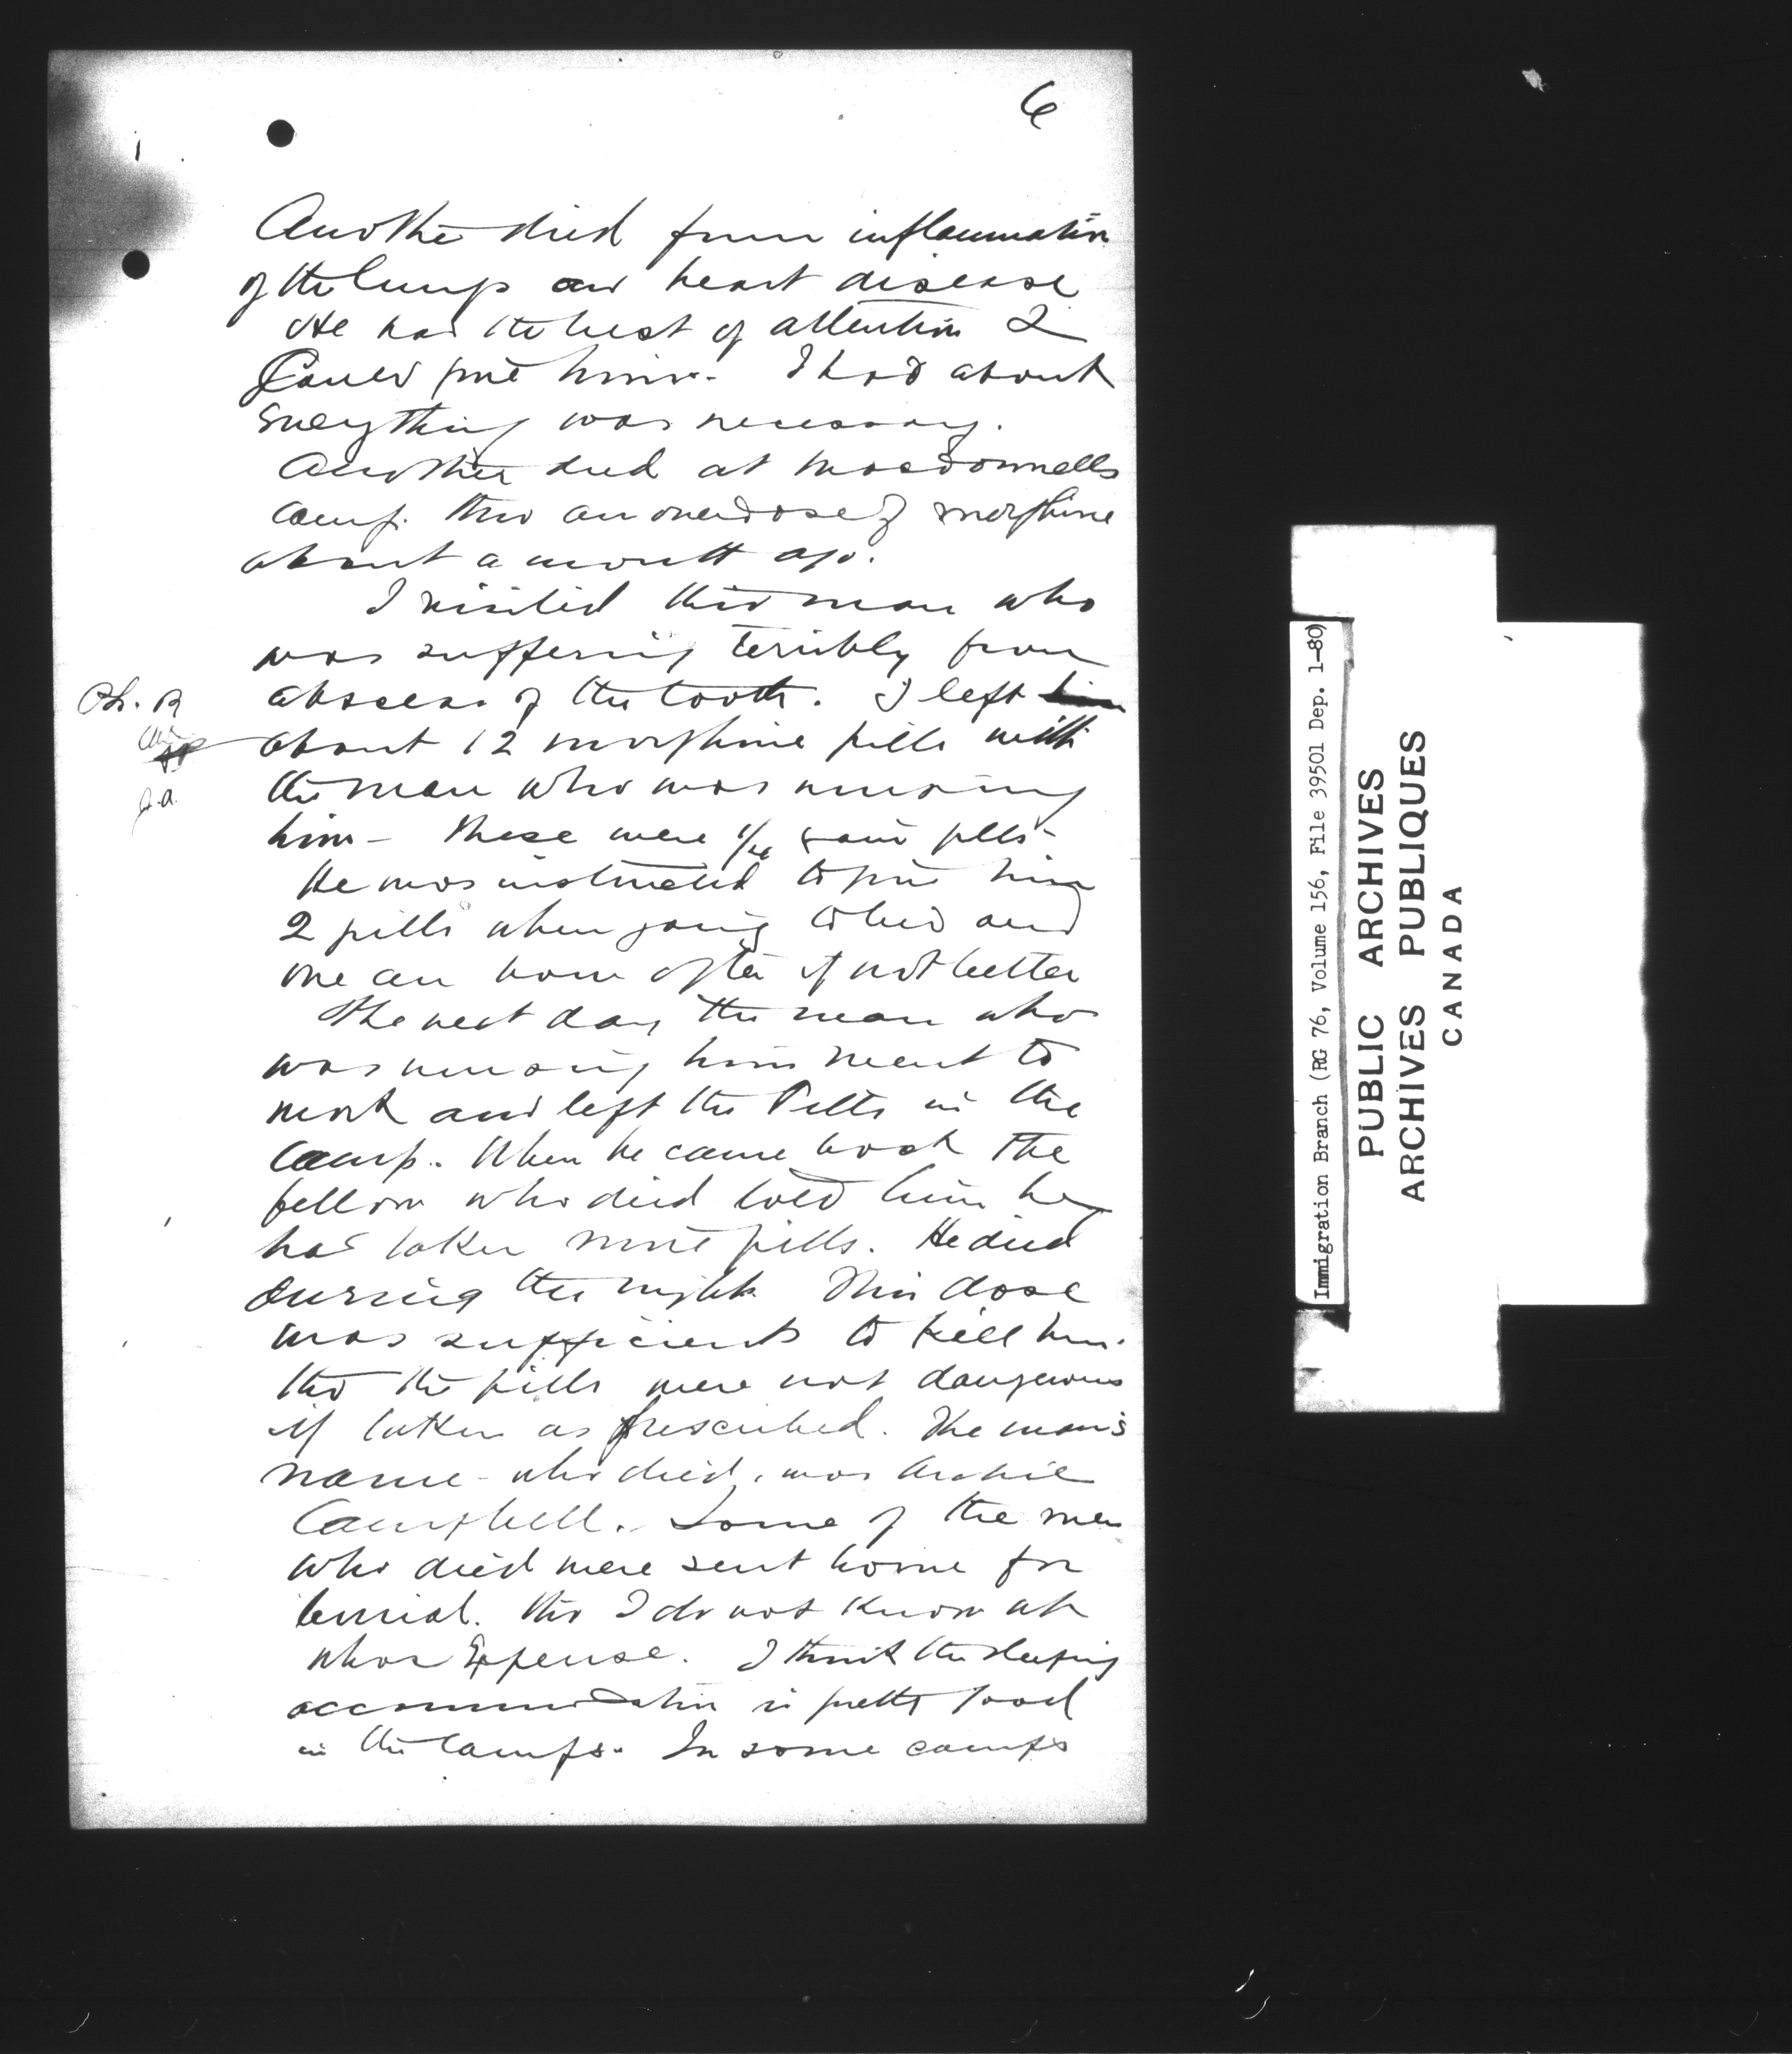 6
Another died from inflammation
of the lungs and heart disease
He had the best of attention I
Could give him. I had about
everything was necessary.
Another died at Macdonnells
Camp. thro an overdose of morphine
about a month ago.
I visited this man who
was suffering terribly from
abscess of the tooth. I left him
about 12 morphine pills with
the man who was nursing
him - these were grain pills -
He was instructed to give him
2 pills when going to bed and
one an hour after if not better
The next day the man who
was nursing him went to
work and left the Pills in the
Camp. When he came back the
fellow who died told him he
had taken nine pills. He died
during the night. This dose
was sufficient to kill him.
tho the pills were not dangerous
if taken as prescribed. The man's
name - who died, was Archie
Campbell. Some of the men
who died were sent home for
burial. tho I do not know at
whos Expense. I think the sleeping
accommodation is pretty good
in the Camps. In some camps
J.A.
Immigration Branch (RG 76, Volume 156, File 39501 Dep. 1-80)
PUBLIC ARCHIVES
ARCHIVES PUBLIQUES
CANADA